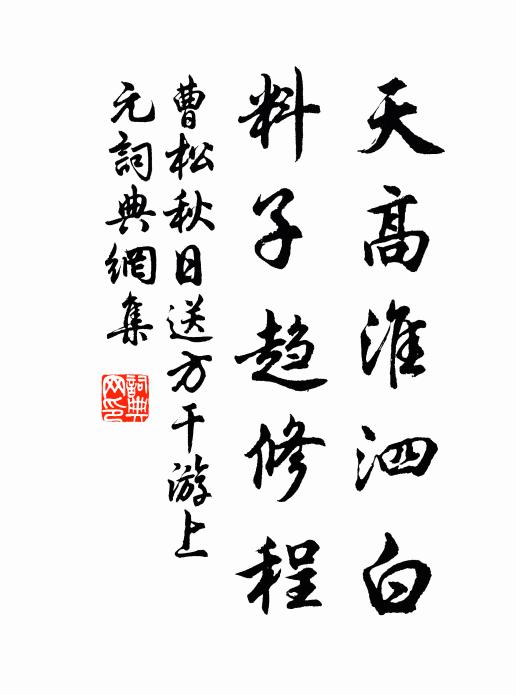 天高淮泗白
料子趋修程
曹松秋日送方干游上
元詞典網集
詞典
网印